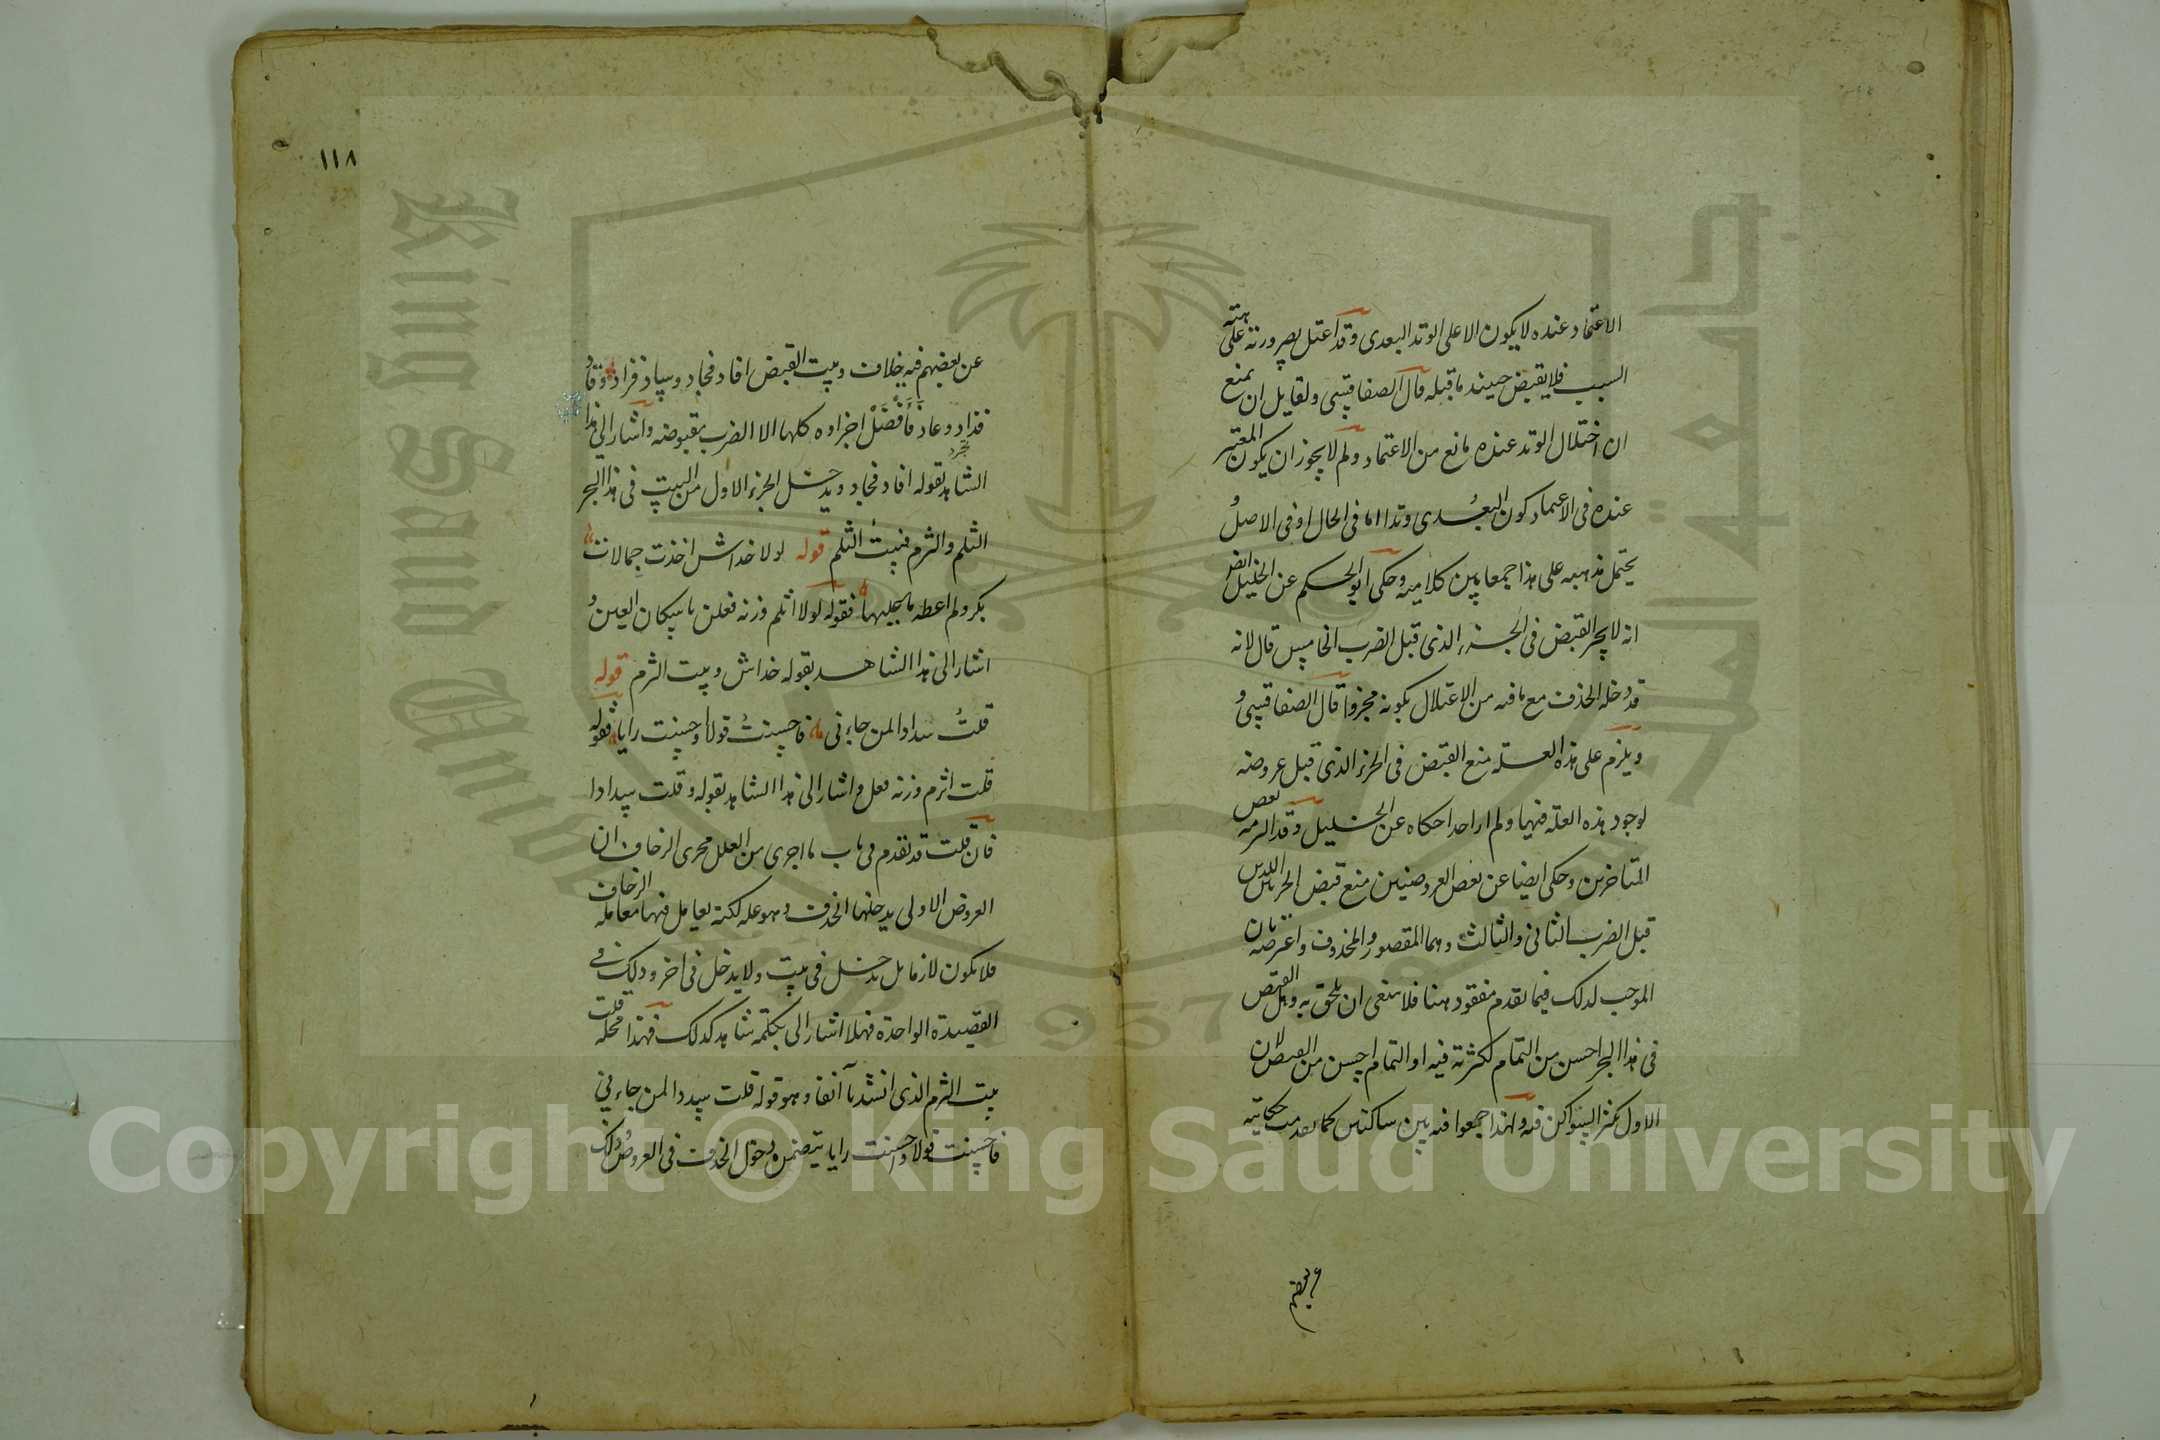 الاعتماد عنده لا يكون الا على الوتد البعدى وقد اعتل بصيرورته على هيئة
السبب فلا يقبض حينئذ ما قبله قال الصفاقسى ولقايل ان يمنع
ان اختلال الوتد عنده مانع من الاعتماد ولم لا يجوز ان يكون المعتبر
عنده فى الاعتماد كون البعدى وتدا اما فى الحال او فى الاصل
يحتمل مذهبه على هذا جمعا بين كلاميه وحكى ابو الحكم عن الخليل ايضا
انه لا يجيز القبض فى الجزء الذى قبل الضرب الخامس قال لانه
قد دخله الحذف مع ما فيه من الاعتلال بكونه مجزوا قال الصفاقسى و
ويلزم على هذه العلة منع القبض فى الجزء الذى قبل عروضه
لوجود هذه العلة فيهما ولم ار احدا حكاه عن الخليل وقد التزمه بعض
المتاخرين وحكى ايضا عن بعض العروضيين منع قبض الجزءين اللذين
قبل الضرب الثانى والثالث وهما المقصور والمحذوف واعترضه بان
الموجب لذلك فيما تقدم مفقود هنا فلا ينبغى ان يلحق به وهل القبض
فى هذا البحر احسن من التمام لكثرته فيه او التمام احسن من القبض لان
الاول تكثر السواكن فيه ولهذا جمعوا فيه بين ساكنين كما تقدمت حكايته
عن بعضهم
١١٨
عن بعضهم فيه خلاف وبيت القبض افاد فجاد وساد فزاد وقاد
فذاد وعاد فأفضل اجزاوه كلها الا الضرب مقبوضه واشار الى هذا
الشاهد بقوله افاد فجاد ويدخل الجزء الاول من البيت فى هذا البحر
الثلم والثرم فبيت الثلم قوله لولا خداش اخذت جمالات
بكر ولم اعطه ما عليها فقوله لولا اثلم وزنه فعلن باسكان العين و
اشار الى هذا الشاهد بقوله خداش وبيت الثرم قوله
قلت سدادا لمن جاءنى فاحسنت قولا واحسنت رايا فقوله
قلت اثرم وزنه فعل واشار الى هذا الشاهد بقوله وقلت سدادا
فان قلت قد تقدم فى باب ما اجرى من العلل مجرى الزحاف ان
العروض الاولى يدخلها الحذف وهو علة لكنه يعامل فيها معاملة الزحاف
فلا يكون لازما بل يدخل فى بيت ولا يدخل فى اخر وذلك فى
القصيدة الواحدة فهلا اشار الى بكلمة شاهد كذلك فهذا محله قلت
بيت الثرم الذى انشدناه آنفا وهو قوله قلت سددا لمن جاءنى
فاحسنت قولا واحسنت رايا يتضمن دخول الحذف فى العروض وذلك